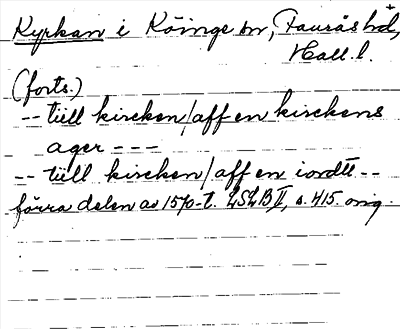 Kyrkan i Köinge sn, Faurås hd,
Hall. l.
(forts.)
-- tiill kircken / aff en kirckens
ager ---
-- tiill kircken / aff en iordtt --
förra delen av 1570-t. LSLB II, s. 415. orig.